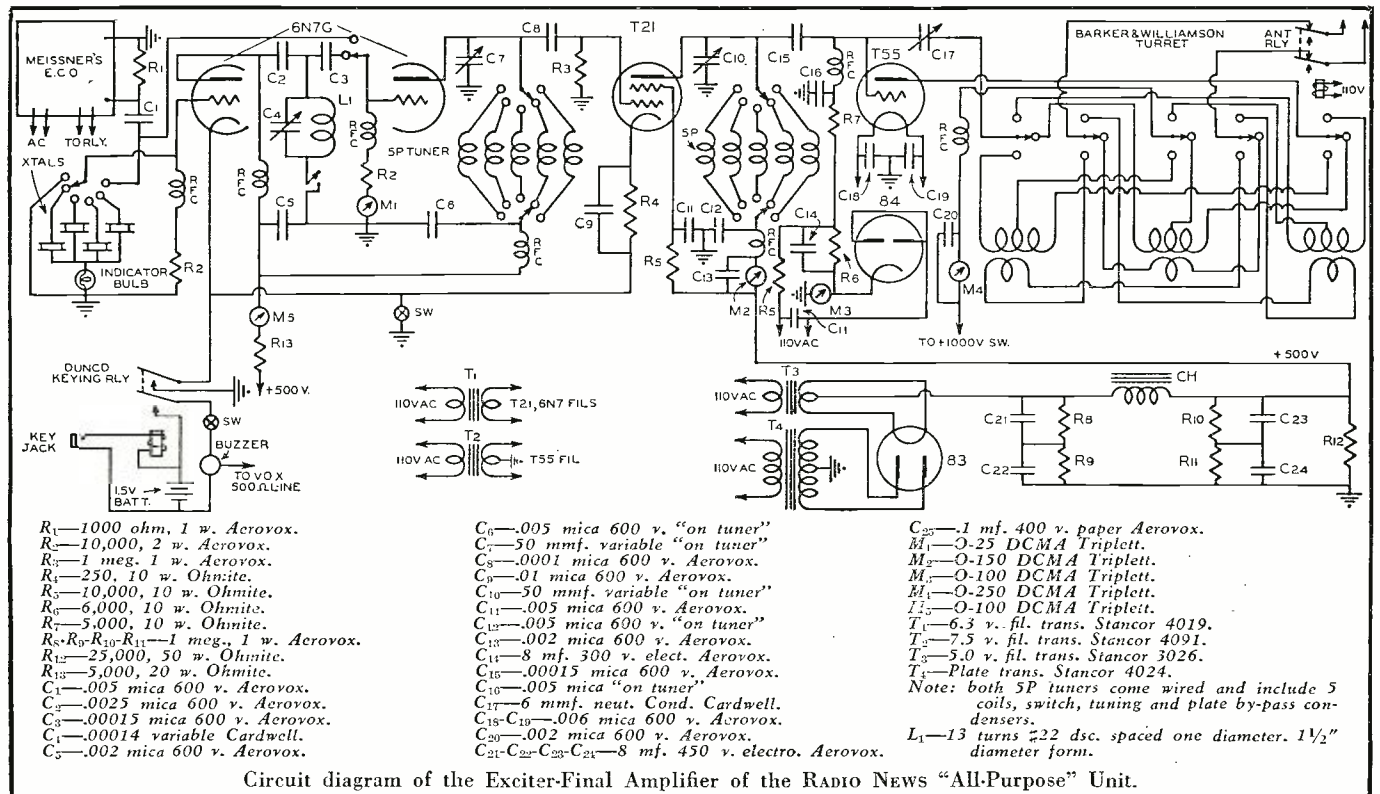 6N7G
T21
MEISSNER'S
E.C.O
R1
C1
AC
TO RLY.
XTALS
INDICATOR
BULB
RFC
R2
C2
C3
C4
L1
RFC
C5
RFC
R2
M1
C6
M5
R13
+500V.
C7
5P TUNER
RFC
C8
R3
SW
C9
R4
R5
C10
5P
C11
C12
RFC
C13
M2
C15
C16
RFC
R7
C14
R6
R5
M3
C11
110VAC
T55
C17
C18
C19
84
RFC
C20
M4
TO +1000V SW.
BARKER & WILLIAMSON
TURRET
ANT
RLY
110V
+500V
DUNCO
KEYING RLY
KEY
JACK
SW
BUZZER
TO VOX
500Ω LINE
1.5V
BATT.
T1
110VAC
T21, 6N7 FILS
T2
110VAC
T55 FIL
T3
110VAC
T4
110VAC
83
CH
C21
R8
C22
R9
R10
C23
R11
C24
R12
R1—1000 ohm, 1 w. Aerovox.
R2—10,000, 2 w. Aerovox.
R3—1 meg. 1 w. Aerovox.
R4—250, 10 w. Ohmite.
R5—10,000, 10 w. Ohmite.
R6—6,000, 10 w. Ohmite.
R7—5,000, 10 w. Ohmite.
R8-R9-R10-R11—1 meg., 1 w. Aerovox.
R12—25,000, 50 w. Ohmite.
R13—5,000, 20 w. Ohmite.
C1—.005 mica 600 v. Aerovox.
C2—.0025 mica 600 v. Aerovox.
C3—.00015 mica 600 v. Aerovox.
C4—.00014 variable Cardwell.
C5—.002 mica 600 v. Aerovox.
C6—.005 mica 600 v. "on tuner"
C7—50 mmf. variable "on tuner"
C8—.0001 mica 600 v. Aerovox.
C9—.01 mica 600 v. Aerovox.
C10—50 mmf. variable "on tuner"
C11—.005 mica 600 v. Aerovox.
C12—.005 mica 600 v. "on tuner"
C13—.002 mica 600 v. Aerovox.
C14—8 mf. 300 v. elect. Aerovox.
C15—.00015 mica 600 v. Aerovox.
C16—.005 mica "on tuner"
C17—6 mmf. neut. Cond. Cardwell.
C18-C19—.006 mica 600 v. Aerovox.
C20—.002 mica 600 v. Aerovox.
C21-C22-C23-C24—8 mf. 450 v. electro. Aerovox.
C25—.1 mf. 400 v. paper Aerovox.
M1—O-25 DCMA Triplett.
M2—O-150 DCMA Triplett.
M3—O-100 DCMA Triplett.
M4—O-250 DCMA Triplett.
M5—O-100 DCMA Triplett.
T1—6.3 v. fil. trans. Stancor 4019.
T2—7.5 v. fil. trans. Stancor 4091.
T3—5.0 v. fil. trans. Stancor 3026.
T4—Plate trans. Stancor 4024.
Note: both 5P tuners come wired and include 5
coils, switch, tuning and plate by-pass con-
densers.
L1—13 turns #22 dsc. spaced one diameter. 1½"
diameter form.
Circuit diagram of the Exciter-Final Amplifier of the RADIO NEWS "All-Purpose" Unit.